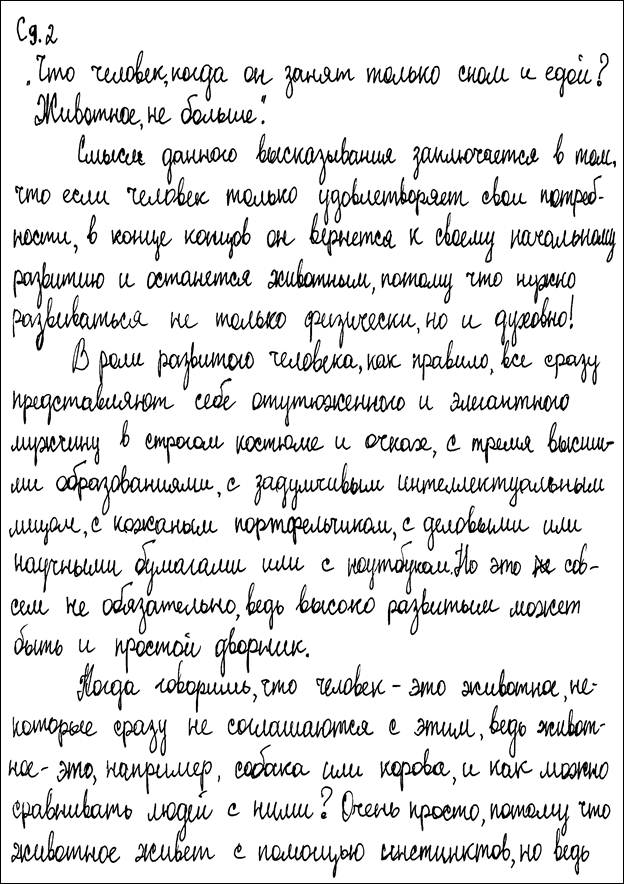 С9.2
„Что человек, когда он занят только сном и едой?
Животное, не больше".
Смысл данного высказывания заключается в том,
что если человек только удовлетворяет свои потреб-
ности, в конце концов он вернется к своему начальному
развитию и останется животным, потому что нужно
развиваться не только физически, но и духовно!
В роли развитого человека, как правило, все сразу
представляют себе отутюженного и элегантного
мужчину в строгом костюме и очках, с тремя высши-
ми образованиями, с задумчивым интеллектуальным
лицом, с кожаным портфельчиком, с деловыми или
научными бумагами или с ноутбуком. Но это не сов-
сем не обязательно, ведь высоко развитым может
быть и простой дворник.
Когда говоришь, что человек - это животное, не-
которые сразу не соглашаются с этим, ведь живот-
ное - это, например, собака или корова, и как можно
сравнивать людей с ними? Очень просто, потому что
животное живет с помощью инстинктов, но ведь